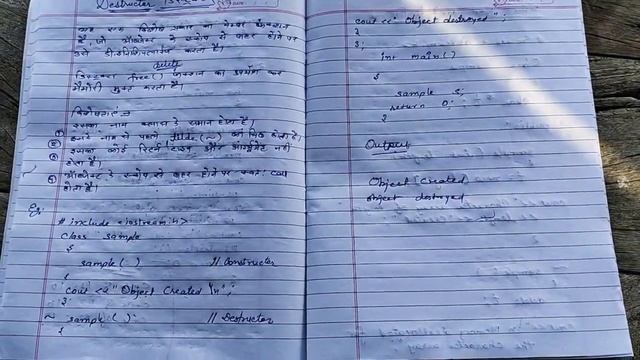 Destructor
यह एक विशेष प्रकार का मेम्बर फंक्शन
है, जो ऑब्जेक्ट के स्कोप से बाहर होने पर
उसे डीइनिशियलाइज करता है।
delete
डिस्ट्रक्टर free() फंक्शन का उपयोग कर
मेमोरी मुक्त करता है।
विशेषताएं
① इसका नाम क्लास के समान होता है।
② इसके नाम से पहले tilde(~) का चिह्न होता है।
③ इसका कोई रिटर्न टाइप और आर्ग्युमेंट नहीं
होता है।
④ ऑब्जेक्ट के स्कोप से बाहर होने पर स्वतः call
होता है।
Eg:
# include <iostream.h>
class sample
{
sample( ) // Constructor
{
cout << "Object Created \n";
}
~ sample( ) // Destructor
{
cout << "Object destroyed";
}
};
int main()
{
sample s;
return 0;
}
Output
Object Created
object destroyed